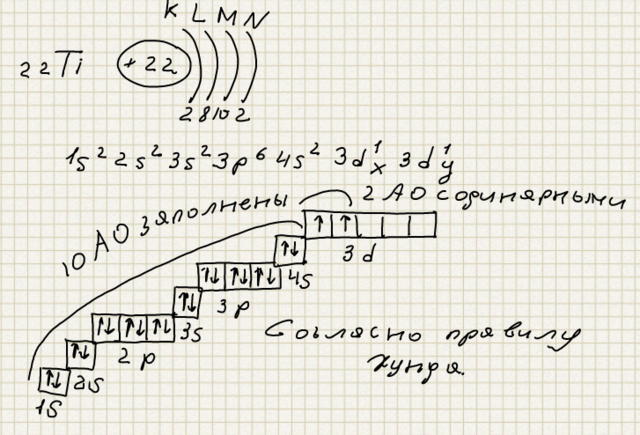 K L M N
22Ti +22
2 8 10 2
1s² 2s² 3s² 3p⁶ 4s² 3d¹ₓ 3d¹ᵧ
10 АО заполнены
2 АО с одинярными
3d
4s
3p
3s
Согласно правилу
хунда.
2p
2s
1s